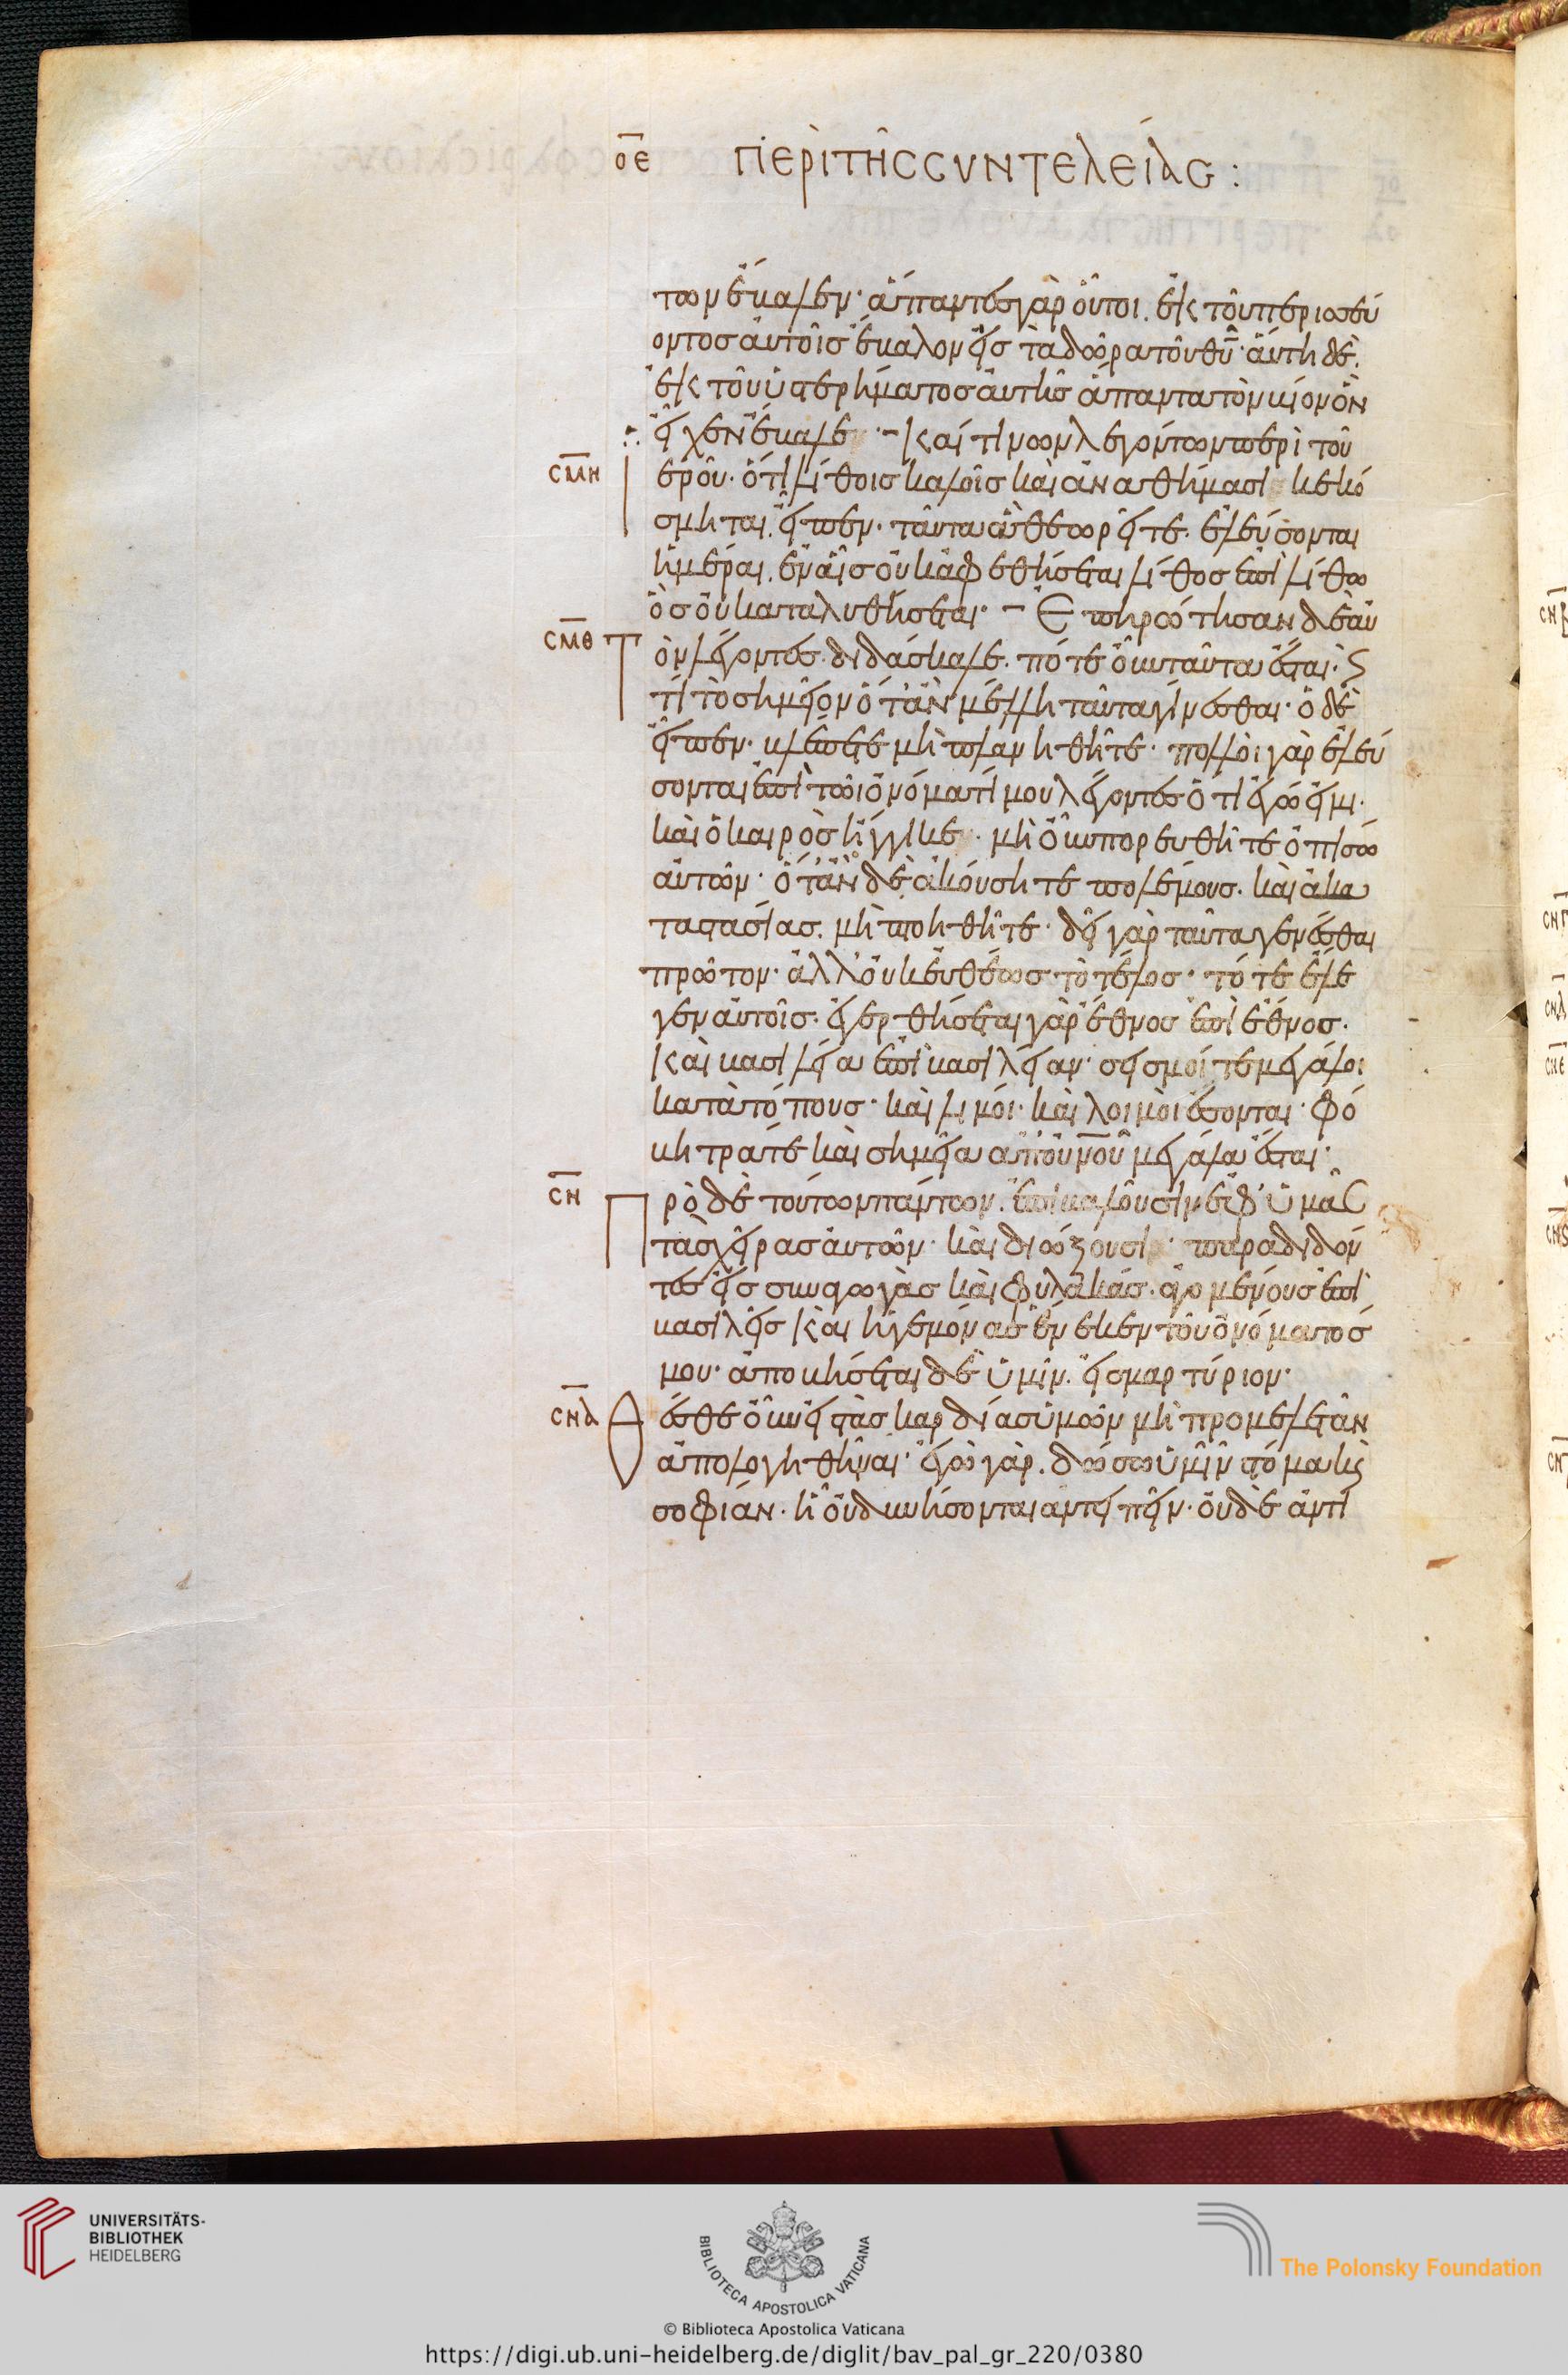 ο̅ε ΠΕΡῚ ΤΗ͂Σ ΣΥΝΤΕΛΕΊΑΣ :
των ἔβαλεν· ἅπαντες γὰρ οὗτοι. ἐκ τοῦ περισσεύ
οντος αὐτοῖς ἔβαλον εἰς τὰ δῶρα τοῦ θ̅υ̅· αὕτη δὲ.
ἐκ τοῦ ὑστερήματος αὐτῆς ἅπαντα τὸν βίον ὃν
εἶχεν ἔβαλε· – καί τινων λεγόντων περὶ τοῦ
σ̅μ̅η εροῦ· ὅτι λίθοις καλοῖς καὶ ἀναθήμασι κεκό
σμηται. εἶπεν· ταῦτα ἃ θεωρεῖτε. ἐλεύσονται
ἡμέραι. ἐν αἷς οὐκ ἀφεθήσεται λίθος ἐπὶ λίθω
ὃς οὐ καταλυθήσεται· – Ἐπηρώτησαν δὲ αὐ
σ̅μ̅θ Τὸν λέγοντες. διδάσκαλε. πότε οὖν ταῦτα ἔσται· ϛ
τί τὸ σημεῖον ὅταν μέλλη ταῦτα γίνεσθαι· ὁ δὲ
εἶπεν· βλέπετε μὴ πλανηθῆτε· πολλοὶ γὰρ ἐλεύ
σονται ἐπὶ τῶι ὀνόματί μου λέγοντες ὅτι ἐγώ εἰμι·
καὶ ὁ καιρὸς ἤγγικε· μὴ οὖν πορευθῆτε ὀπίσω
αὐτῶν· ὅταν δὲ ἀκούσητε πολέμους. καὶ ἀκα
ταστασίας. μὴ πτοηθῆτε· δεῖ γὰρ ταῦτα γενέσθαι
πρῶτον· ἀλλ' οὐκ εὐθέως τὸ τέλος· τότε ἔλε
γεν αὐτοῖς. ἐγερθήσεται γὰρ ἔθνος ἐπὶ ἔθνος.
καὶ βασιλεία ἐπὶ βασιλείαν· σεισμοί τε μεγάλοι
κατὰ τόπους· καὶ λιμοὶ· καὶ λοιμοὶ ἔσονται· φό
βητρά τε καὶ σημεῖα ἀπ' οὐ̅ν̅οῦ μεγάλα ἔσται·
σ̅ν Πρὸ δὲ τούτων πάντων. ἐπιβαλοῦσιν ἐφ' ὑμᾶς
τὰς χεῖρας αὐτῶν· καὶ διώξουσι· παραδιδόν
τες εἰς συναγωγὰς καὶ φυλακάς. ἀγομένους ἐπὶ
βασιλεῖς καὶ ἡγεμόνας ἕνεκεν τοῦ ὀνόματός
μου· ἀποβήσεται δὲ ὑμῖν. εἰς μαρτύριον·
σ̅ν̅α Θέσθε οὖν εἰς τὰς καρδίας ὑμῶν μὴ προμελετᾶν
ἀπολογηθῆναι· ἐγὼ γὰρ. δώσω ὑμῖν στόμα κ(αὶ)
σοφίαν· ἧ οὐ δυνήσονται ἀντειπεῖν· οὐδὲ ἀντι
UNIVERSITÄTS-
BIBLIOTHEK
HEIDELBERG
BIBLIOTECA APOSTOLICA VATICANA
The Polonsky Foundation
© Biblioteca Apostolica Vaticana
https://digi.ub.uni-heidelberg.de/diglit/bav_pal_gr_220/0380